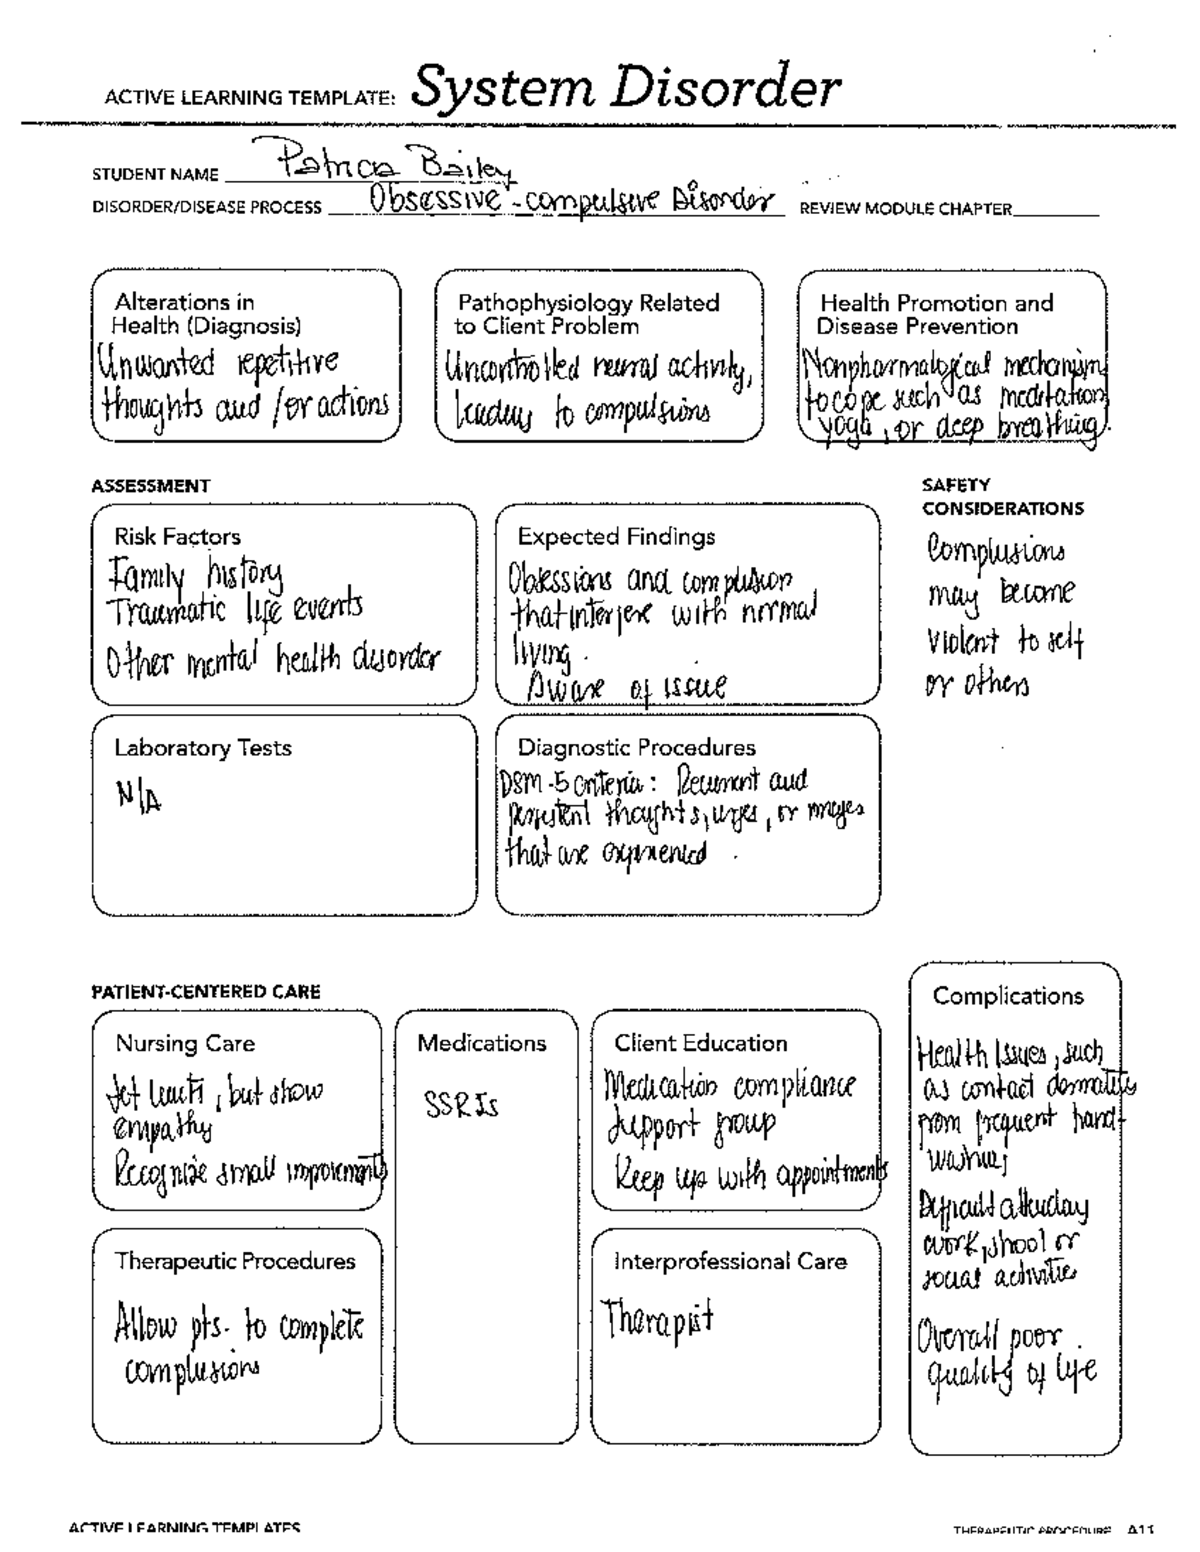 ACTIVE LEARNING TEMPLATE: System Disorder
STUDENT NAME Patricia Bailey
DISORDER/DISEASE PROCESS Obsessive-compulsive Disorder REVIEW MODULE CHAPTER
Alterations in
Health (Diagnosis)
Unwanted repetitive
thoughts and /or actions
Pathophysiology Related
to Client Problem
Uncontrolled neural activity,
leading to compulsions
Health Promotion and
Disease Prevention
Nonpharmalogical mechanism
to cope such as meditation,
yoga, or deep breathing.
ASSESSMENT
SAFETY
CONSIDERATIONS
Complusions
may become
violent to self
or others
Risk Factors
Family history
Traumatic life events
Other mental health disorder
Expected Findings
Obsessions and complusion
that interfere with normal
living.
Aware of issue
Laboratory Tests
N/A
Diagnostic Procedures
DSM-5 criteria: Recurrent and
persistent thoughts, urges, or images
that are experienced.
PATIENT-CENTERED CARE
Nursing Care
Set limits, but show
empathy
Recognize small improvements
Medications
SSRIs
Client Education
Medication compliance
Support group
Keep up with appointments
Complications
Health Issues, such
as contact dermatitis
from frequent hand-
washing
Difficult attending
work, shool or
social activities
Overall poor
quality of life
Therapeutic Procedures
Allow pts. to complete
complusions
Interprofessional Care
Therapist
ACTIVE LEARNING TEMPLATES
THERAPEUTIC PROCEDURE A11